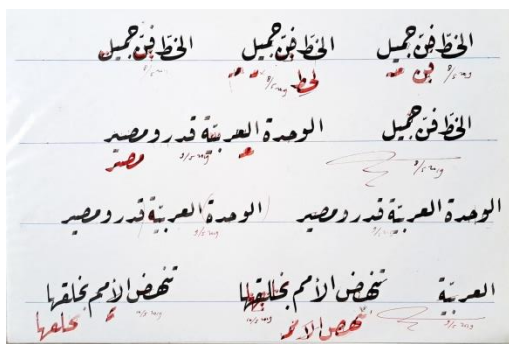 الخطّ فنّ جميل الخطّ فنّ جميل الخطّ فنّ جميل
فن لخط
الخطّ فنّ جميل الوحدة العربيّة قدر ومصير
مصير
الوحدة العربيّة قدر ومصير الوحدة العربيّة قدر ومصير
العربيّة تنهض الأمم بخلقها تنهض الأمم بخلقها
تنهض الأمم بخلقها